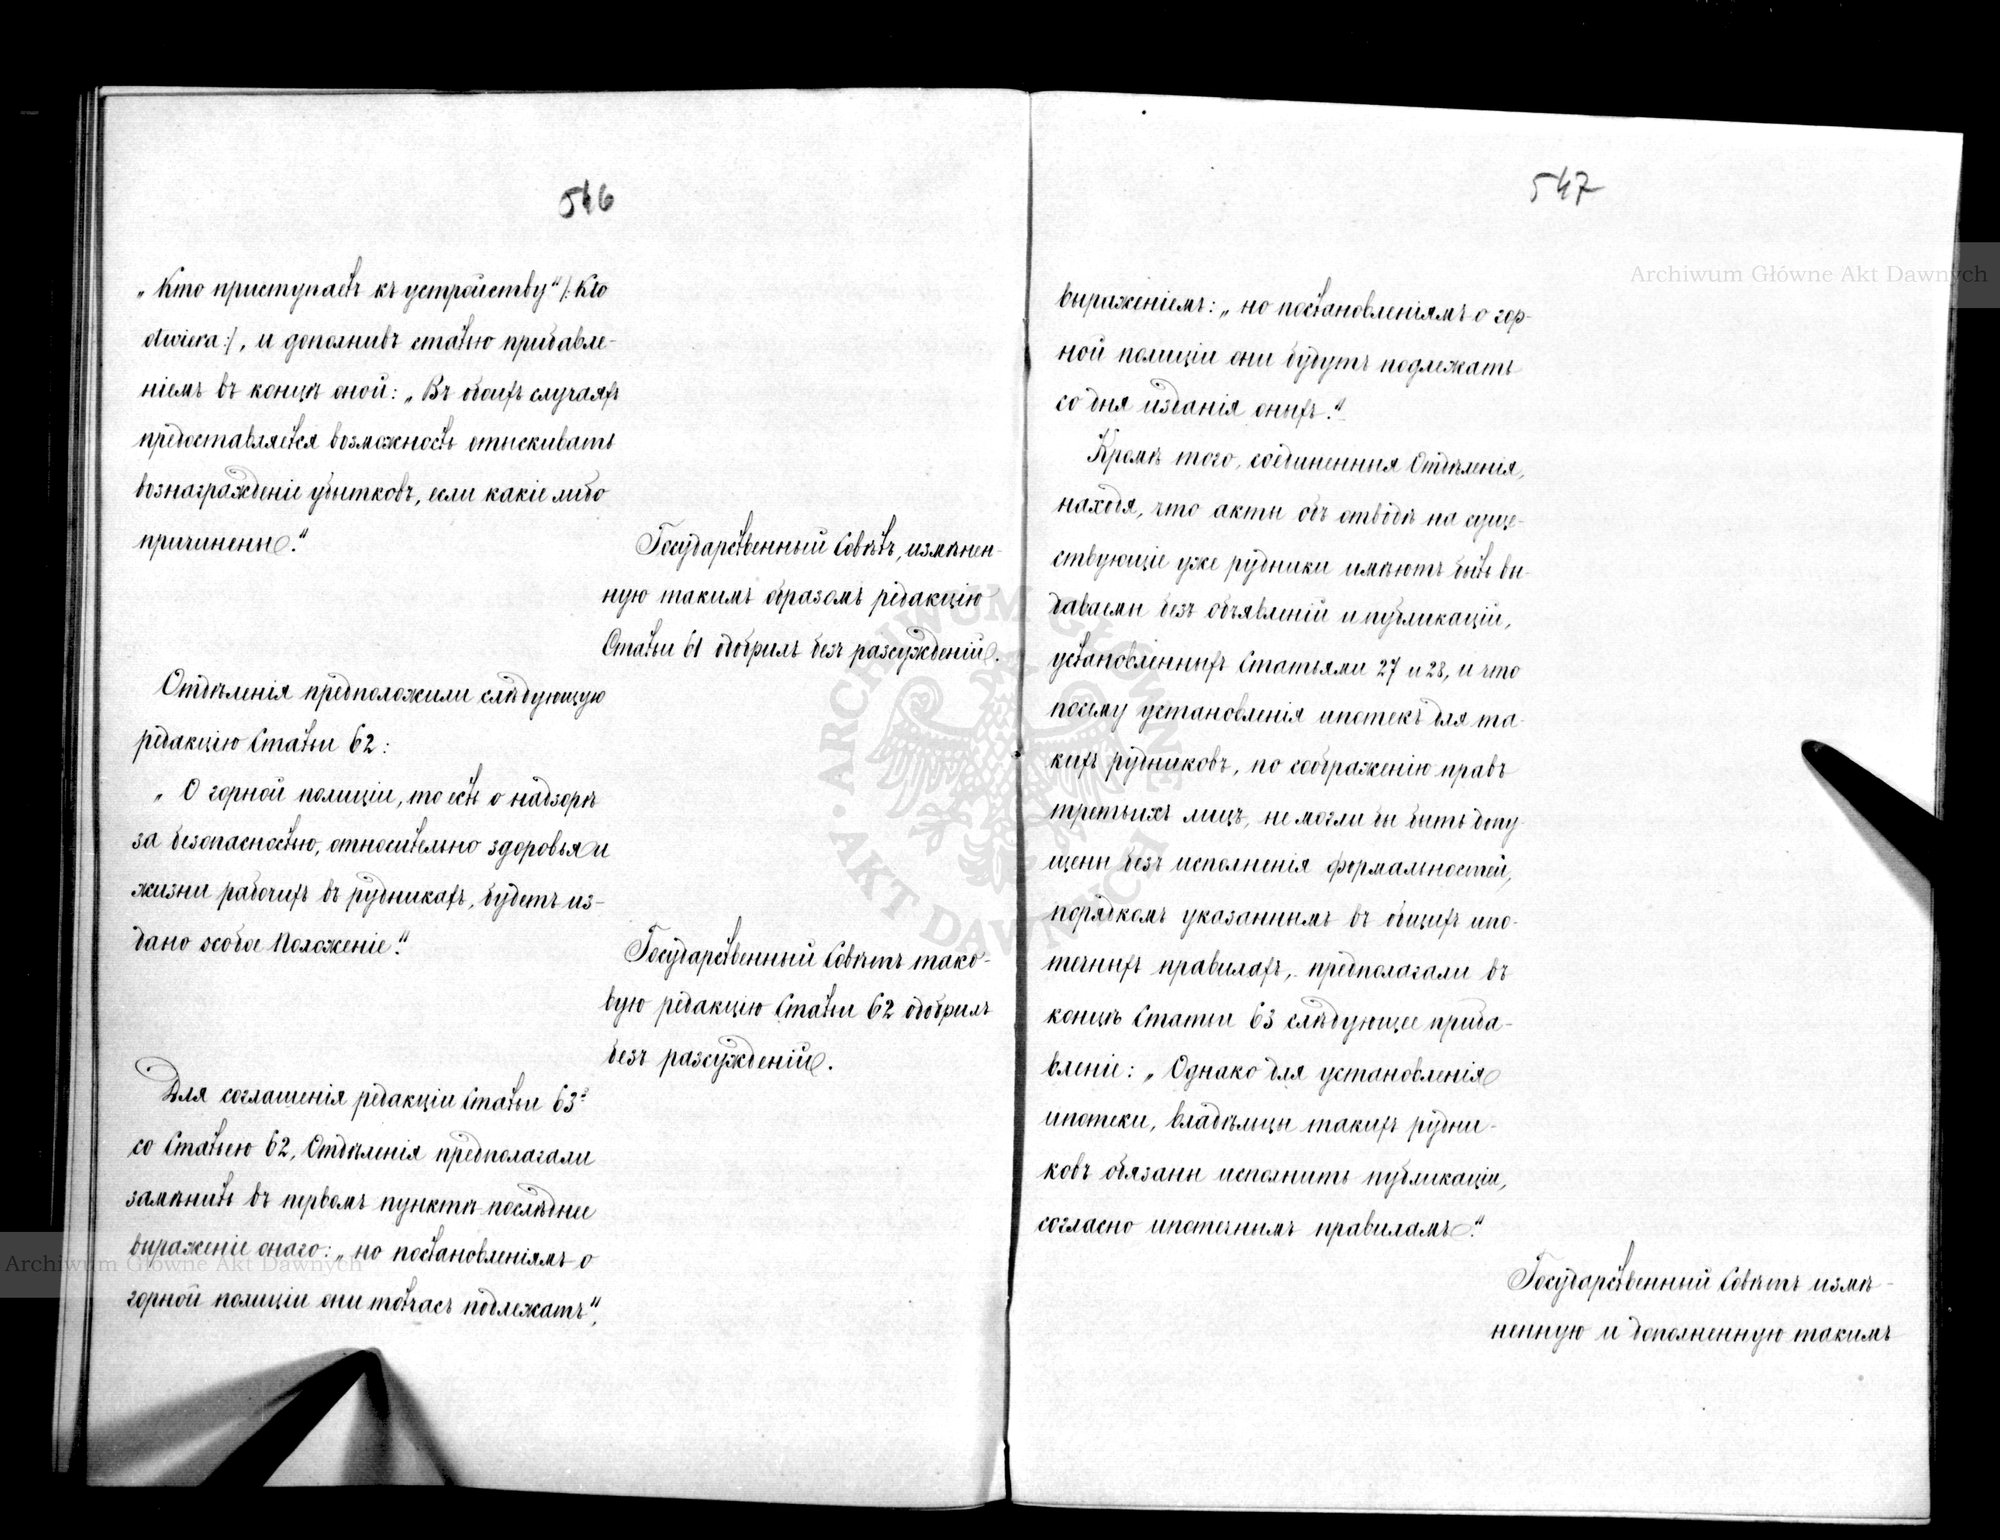 546
„Кто приступаетъ къ устройству“ /:Kto
otwiera:/, и дополнивъ статью прибавле-
ніемъ въ концѣ оной: „Въ обоихъ случаяхъ
предоставляется возможность отыскивать
вознагражденіе убытковъ, если какіе либо
причинены.“
Государственный Совѣтъ, измѣнен-
ную такимъ образомъ редакцію
Статьи 61 одобрилъ безъ разсужденій.
Отдѣленія предположили слѣдующую
редакцію Статьи 62:
„О горной полиціи, то есть о надзорѣ
за безопасностью, относительно здоровья и
жизни рабочихъ въ рудникахъ, будетъ из-
дано особое Положеніе.“
Государственный Совѣтъ тако-
вую редакцію Статьи 62 одобрилъ
безъ разсужденій.
Для соглашенія редакціи Статьи 63й
со Статьею 62, Отдѣленія предполагали
замѣнить въ первомъ пунктѣ послѣднее
выраженіе онаго: „но постановленіямъ о
горной полиціи они тотчасъ подлежатъ“,
547
выраженіемъ: „но постановленіямъ о гор-
ной полиціи они будутъ подлежать
со дня изданія оныхъ.“
Кромѣ того, соединенныя Отдѣленія,
находя, что акты объ отводѣ на суще-
ствующіе уже рудники имѣютъ быть вы-
даваемы безъ объявленій и публикацій,
установленныхъ Статьями 27 и 28, и что
посему установленія ипотекъ для та-
кихъ рудниковъ, по соображенію правъ
третьихъ лицъ, не могли бы быть допу-
щены безъ исполненія формальностей,
порядкомъ указаннымъ въ общихъ ипо-
течныхъ правилахъ, предполагали въ
концѣ Статьи 63 слѣдующее приба-
вленіе: „Однако для установленія
ипотеки, владѣльцы такихъ рудни-
ковъ обязаны исполнить публикаціи,
согласно ипотечнымъ правиламъ.“
Государственный Совѣтъ измѣ-
ненную и дополненную такимъ
Archiwum Główne Akt Dawnych
Archiwum Główne Akt Dawnych
ARCHIWUM GŁÓWNE AKT DAWNYCH